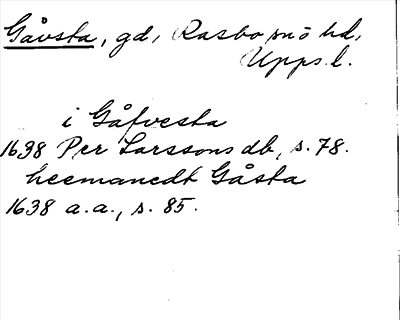 Gåvsta, gd, Rasbo sn o hd,
Upps. l.
i Gåfvesta
1638 Per Larssons db, s. 78.
heemanedt Gåsta
1638 a.a., s. 85.